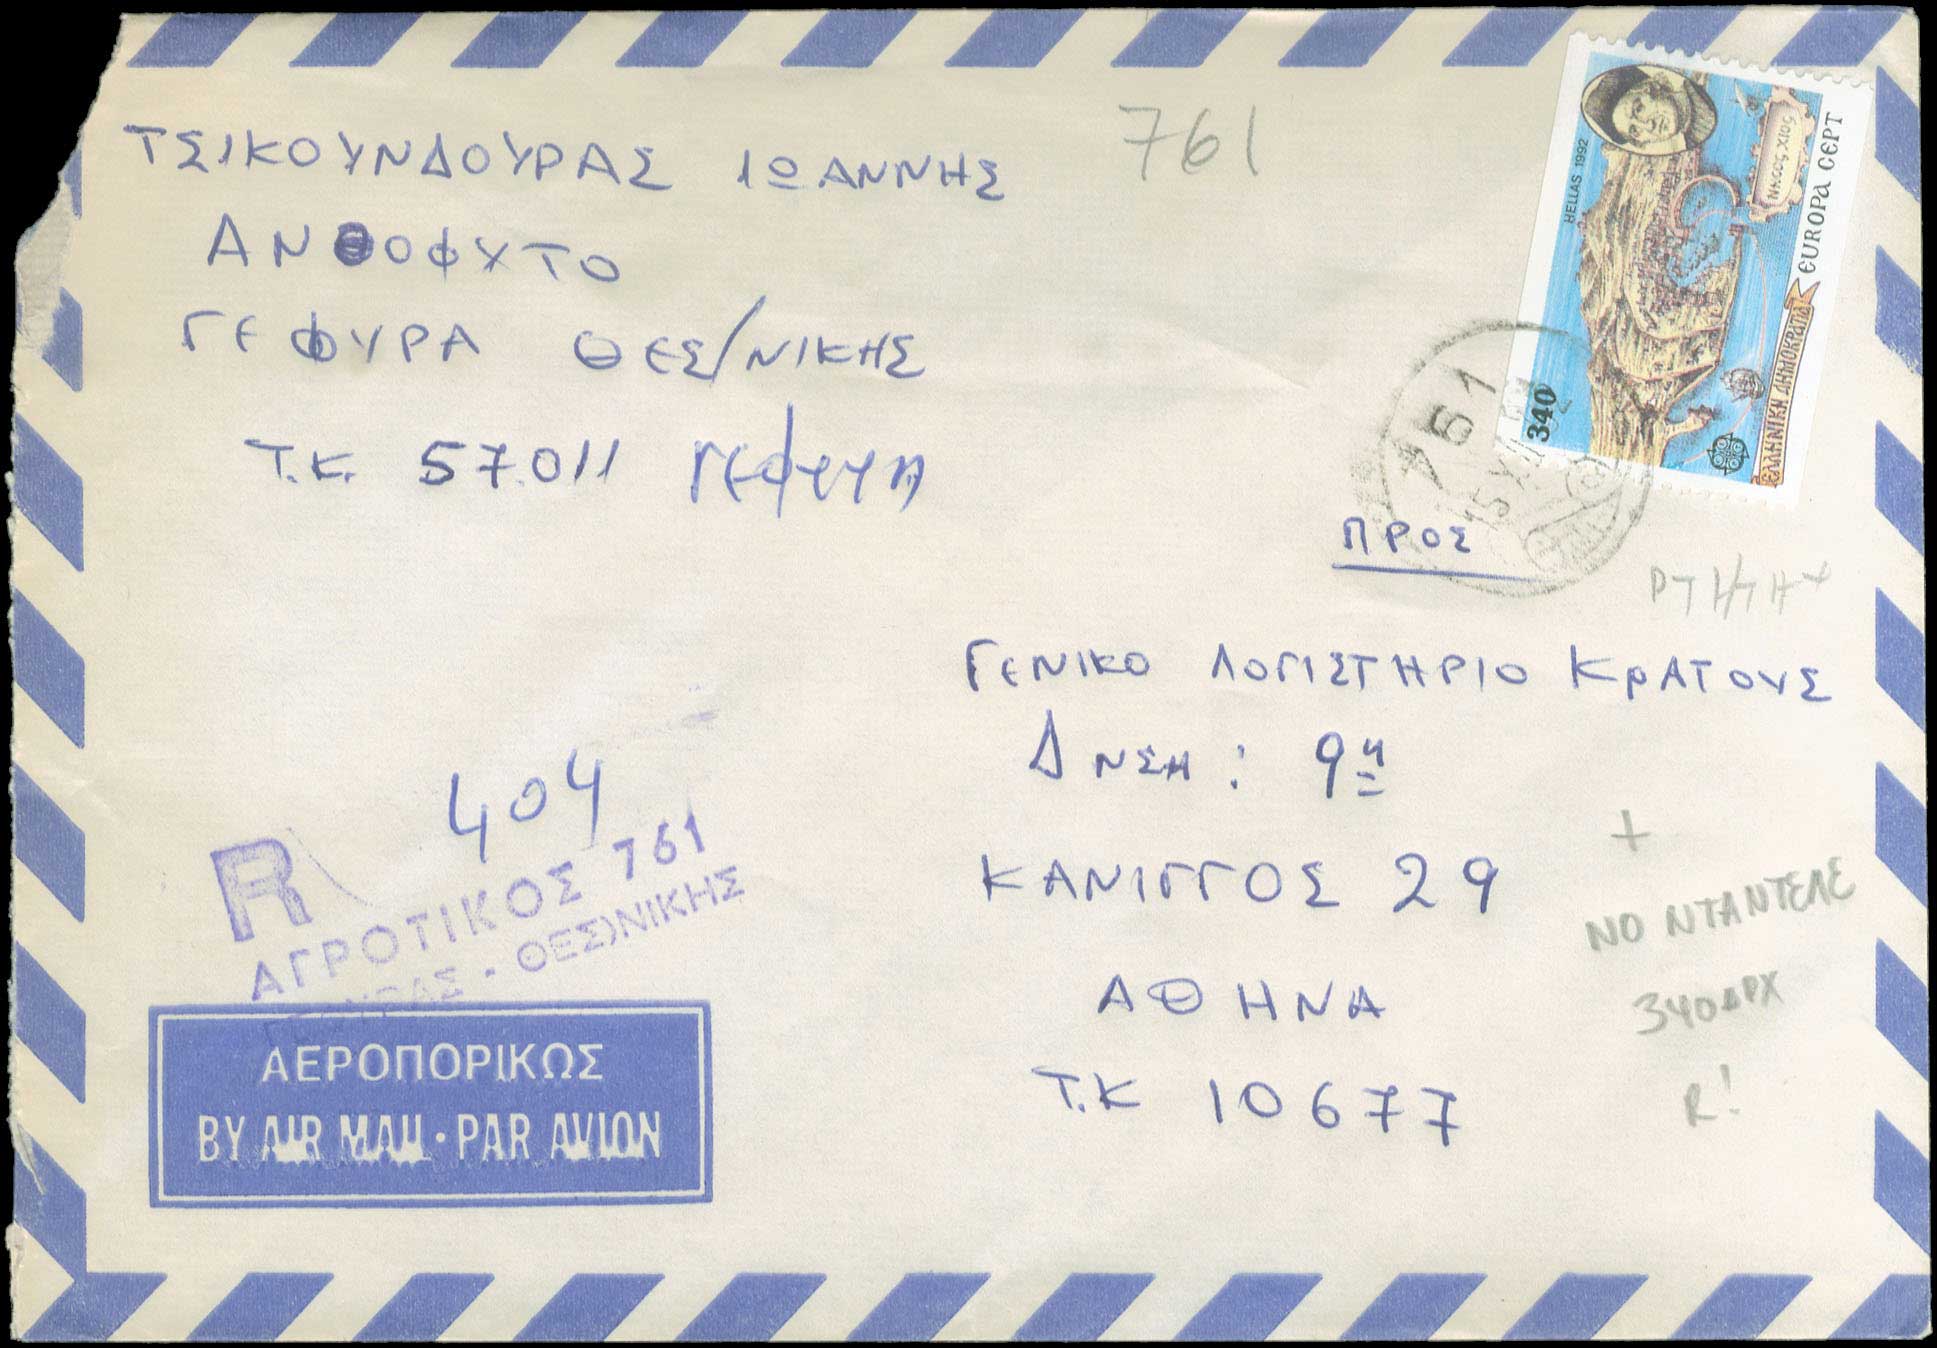 ΤΣΙΚΟΥΝΔΟΥΡΑΣ ΙΩΑΝΝΗΣ
ΑΝΘΟΦΥΤΟ
ΓΕΦΥΡΑ ΘΕΣ/ΝΙΚΗΣ
Τ.Κ. 57.011 ΓΕΦΥΡΑ
761
HELLAS 1992
ΝΗΣΟΣ ΧΙΟΣ
EUROPA CEPT
ΕΛΛΗΝΙΚΗ ΔΗΜΟΚΡΑΤΙΑ
340
761
ΠΡΟΣ
ΓΕΝΙΚΟ ΛΟΓΙΣΤΗΡΙΟ ΚΡΑΤΟΥΣ
ΔΝΣΗ: 9η
ΚΑΝΙΓΓΟΣ 29
ΑΘΗΝΑ
Τ.Κ 10677
+
NO ΝΤΑΝΤΕΛΕ
340 ΔΡΧ
R!
404
R
ΑΓΡΟΤΙΚΟΣ 761
ΓΕΦΥΡΑΣ - ΘΕΣ)ΝΙΚΗΣ
ΑΕΡΟΠΟΡΙΚΩΣ
BY AIR MAIL · PAR AVION